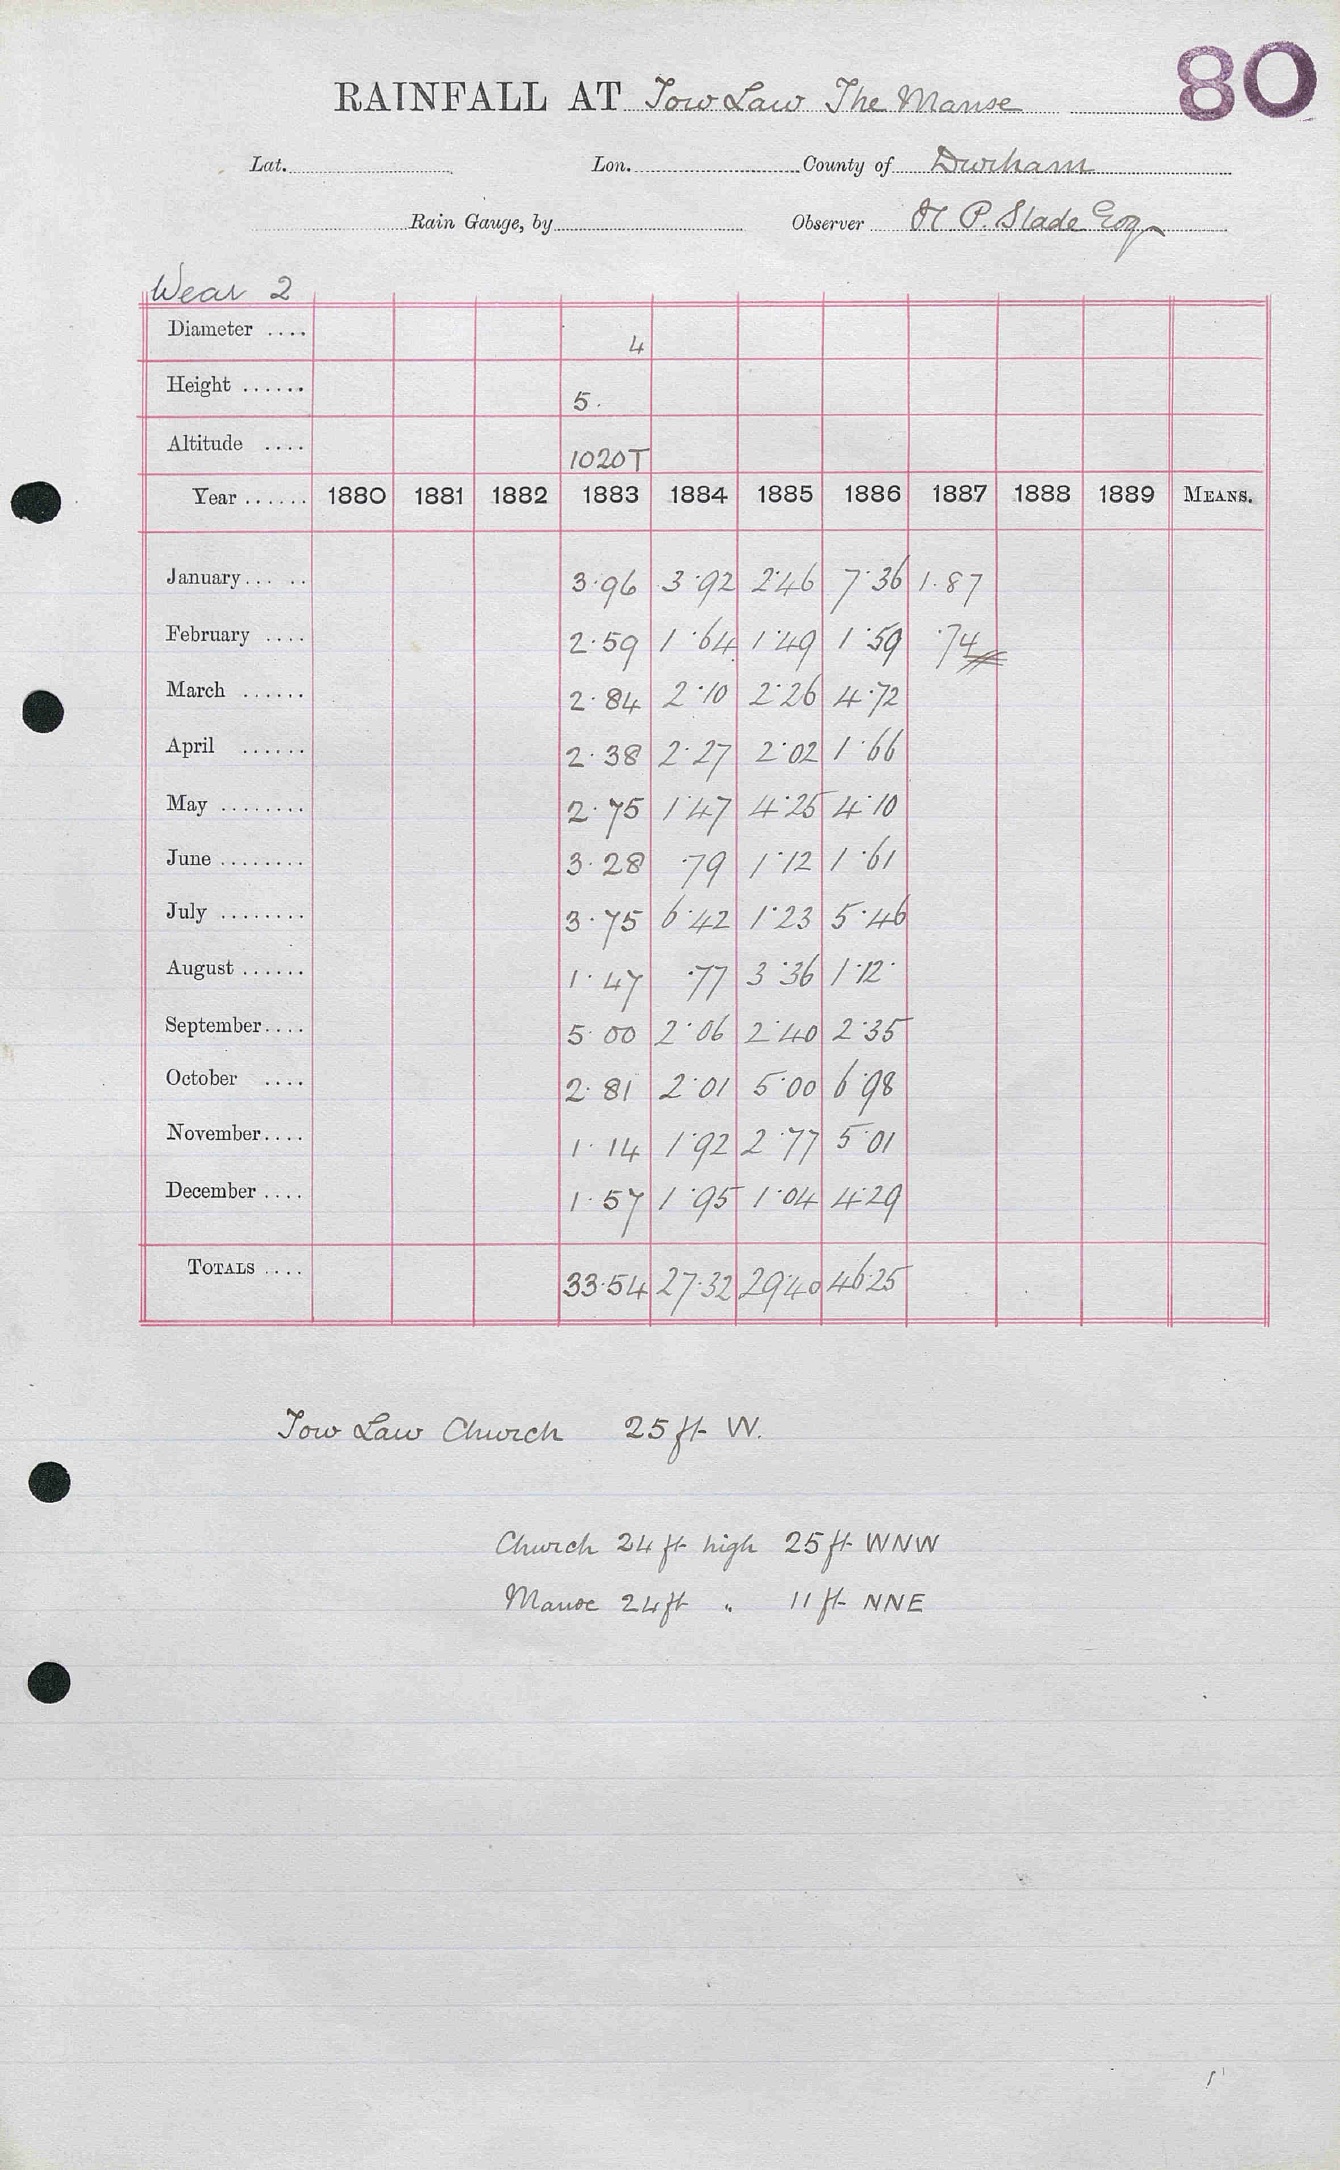 80
RAINFALL AT Tow Law The Manse
Lat. Lon. County of Durham
Rain Gauge, by Observer H P. Slade Esq
Wear 2
Diameter .... 4
Height ...... 5.
Altitude .... 1020T
Year ...... 1880 1881 1882 1883 1884 1885 1886 1887 1888 1889 MEANS.
January... .. 3.96 3.92 2.46 7.36 1.87
February .... 2.59 1.64 1.49 1.59 .74
March ...... 2.84 2.10 2.26 4.72
April ...... 2.38 2.27 2.02 1.66
May ........ 2.75 1.47 4.25 4.10
June ........ 3.28 .79 1.12 1.61
July ........ 3.75 6.42 1.23 5.46
August ...... 1.47 .77 3.36 1.12
September.... 5.00 2.06 2.40 2.35
October .... 2.81 2.01 5.00 6.98
November.... 1.14 1.92 2.77 5.01
December .... 1.57 1.95 1.04 4.29
TOTALS .... 33.54 27.32 29.40 46.25
Tow Law Church 25 ft W.
Church 24 ft high 25 ft WNW
Manse 24 ft " 11 ft NNE